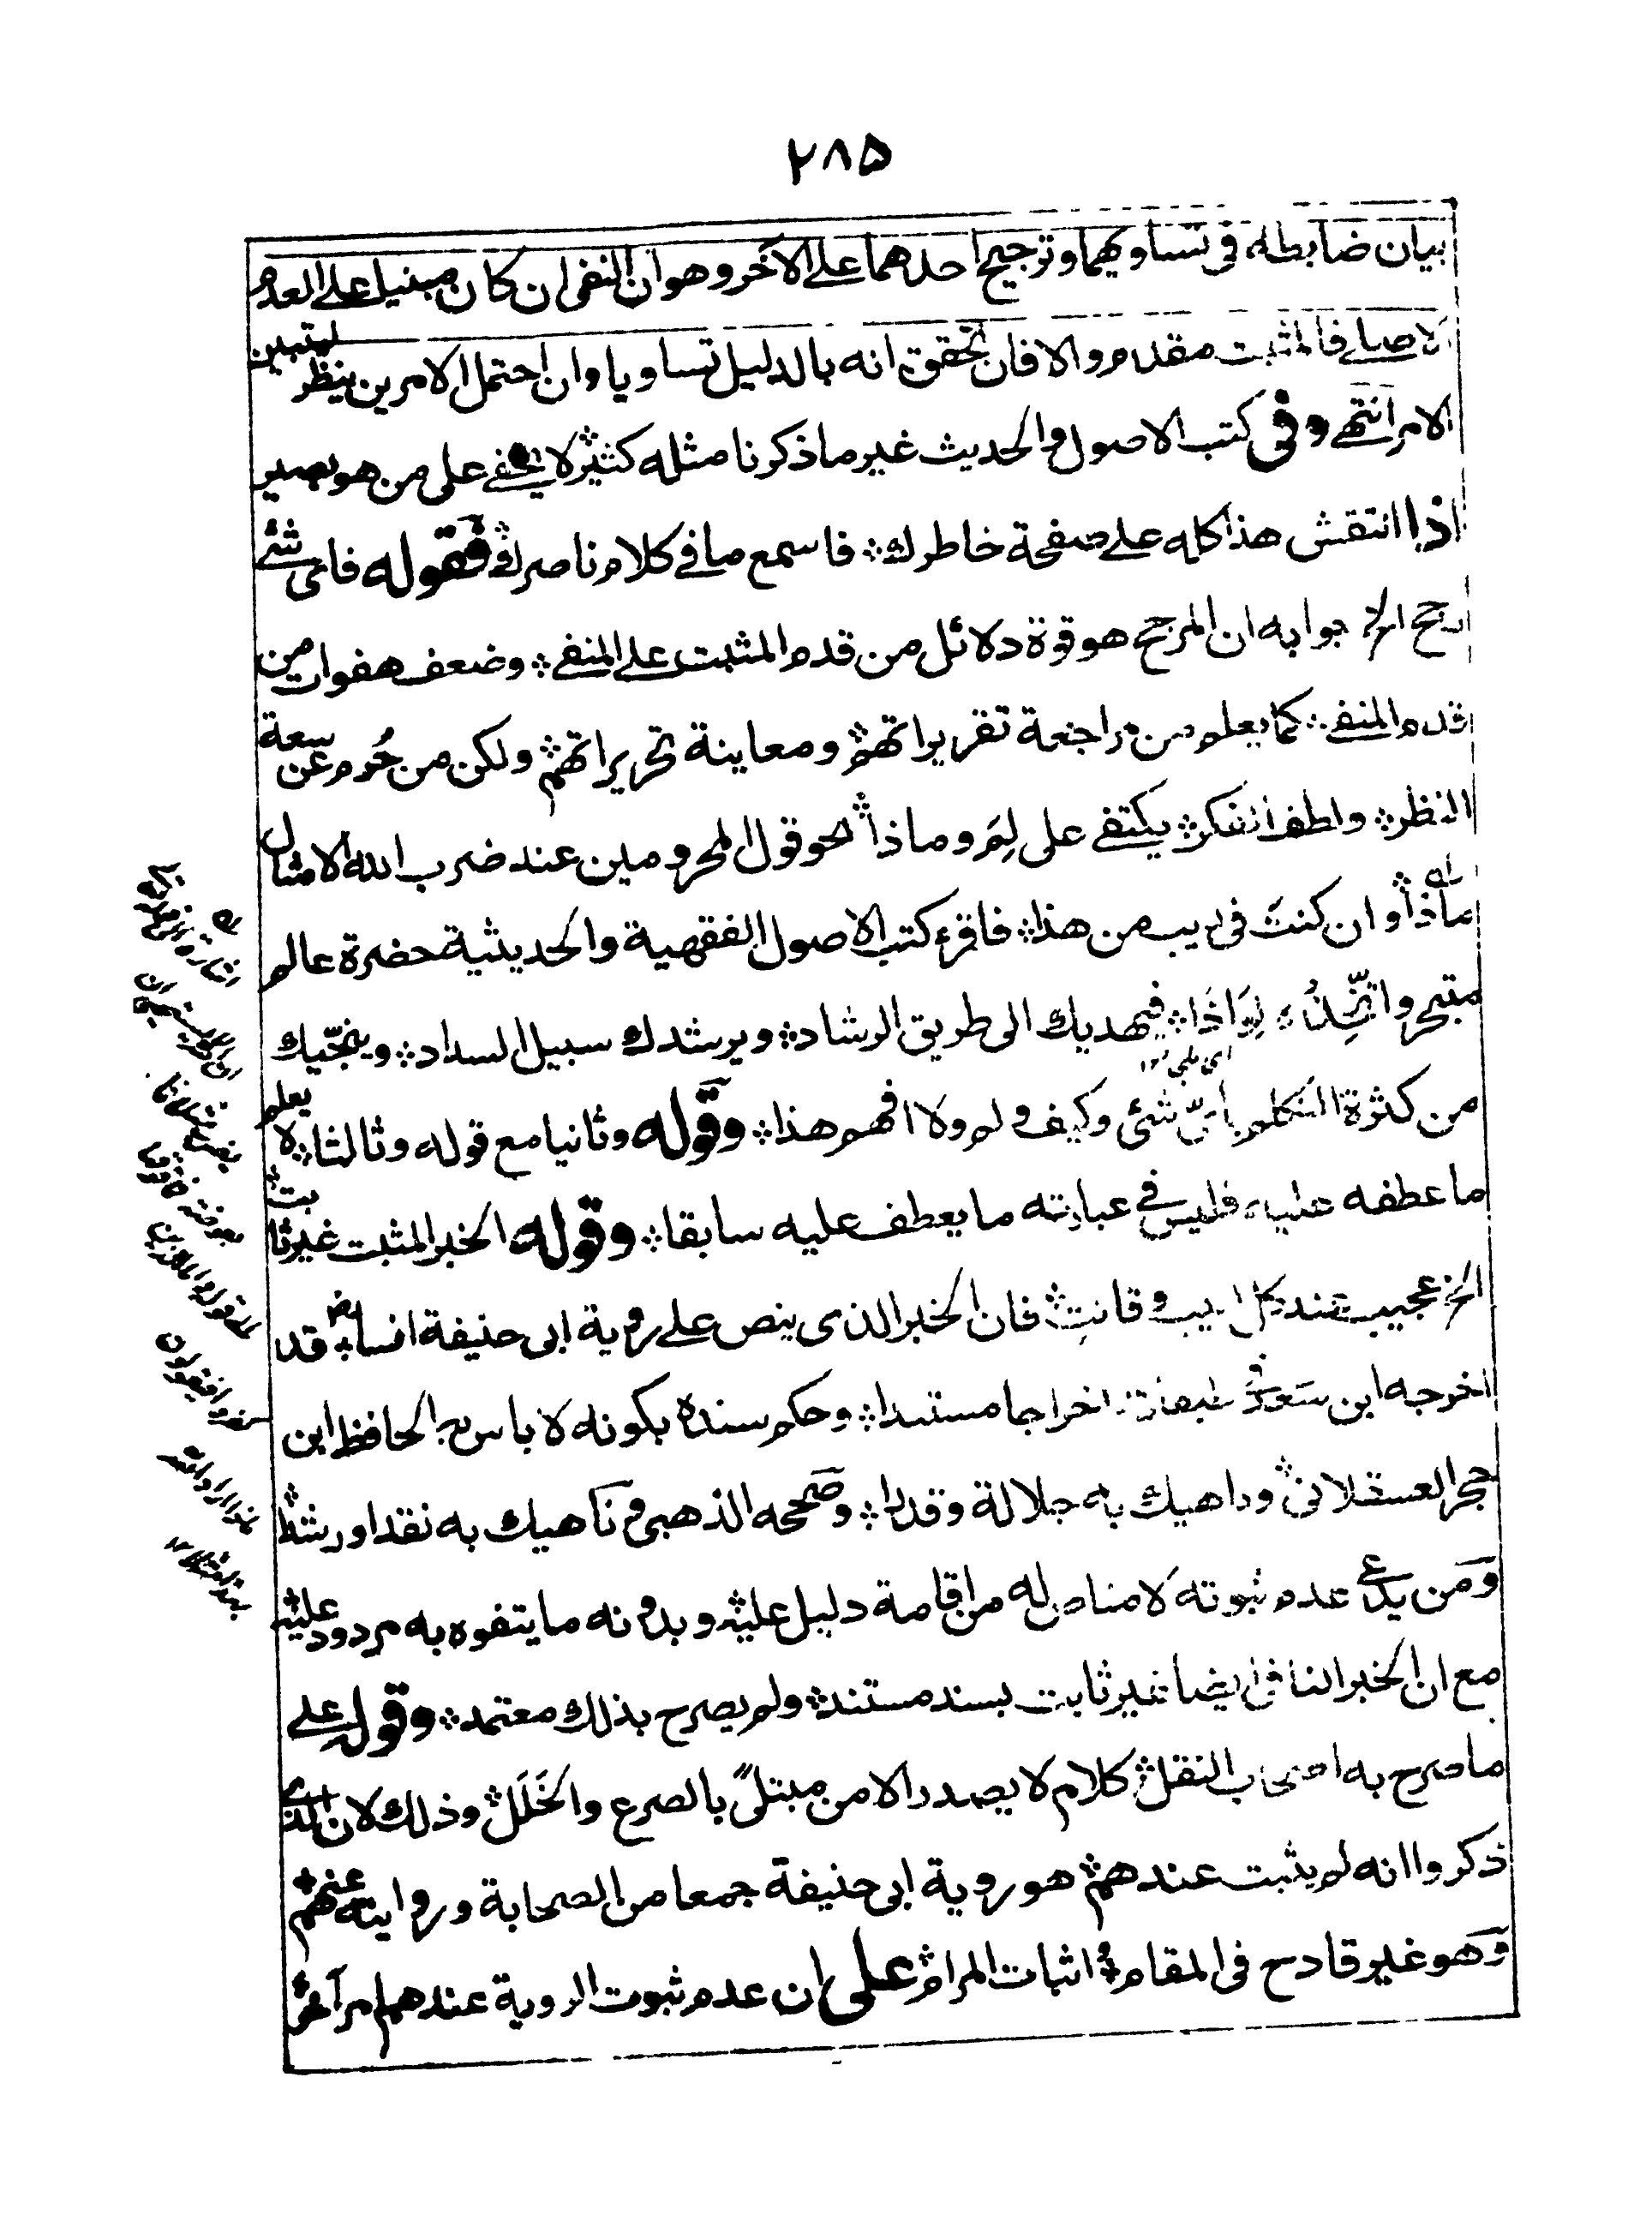 ٢٨٥
بيان ضابطه في تساويهما وترجيح احدهما على الآخر وهو ان النفي ان كان مبنيا على العدم
الاصلي فالمثبت مقدم والا فان تحقق انه بالدليل تساويا وان احتمل الامرين ينظر ليتبين
الامر انتهى وفي كتب الاصول والحديث غير ما ذكرنا مثله كثير لا يخفى على من هو بصير
اذا انتقش هذا كله على صفحة خاطرك فاسمع ما في كلام ناصرك فقوله فاي شئ
رجح الخ جوابه ان المرجح هو قوة دلائل من قدم المثبت على المنفي وضعف هفوات من
قدم المنفي كما يعلم من مراجعة تقريراتهم ومعاينة تحريراتهم ولكن من حُرم عن سعة
النظر ولطف الفكر يكتفي على لِمَ وماذا نحو قول المحرومين عند ضرب الله الامثال
ماذا وان كنت في ريب من هذا فاقرء كتب الاصول الفقهية والحديثية حضرة عالم
متبحر واتخِذْه لِوَاذَا فيهديك الى طريق الرشاد ويرشدك سبيل السداد وينجّيك
من كثرة التكلم باىّ شئ وكيف ولم ولا افهم هذا وقوله وثانيا مع قوله وثالثا لا يعلم
ما عطفه عليه فليس في عبارته ما يعطف عليه سابقا وقوله الخبر المثبت غير ثابت
الخ عجيب عند كل لبيب وقانت فان الخبر الذى ينص على روية ابى حنيفة انسا قد
اخرجه ابن سعد في طبقاته اخراجا مستندا وحكم سنده بكونه لا باس به الحافظ ابن
حجر العسقلاني وناهيك به جلالة وقدرا وصححه الذهبي وناهيك به نقدا ورشدا
ومن يدعي عدم ثبوته لا مناص له من اقامة دليل عليه وبدونه ما يتفوه به مردود عليه
مع ان الخبر النافي ايضا غير ثابت بسند مستند ولم يصرح بذلك معتمد وقوله على
ما صرح به اصحاب النقل كلام لا يصدر الا من مبتلىً بالصرع والخَلَل وذلك لان الذي
ذكروا انه لم يثبت عندهم هو روية ابى حنيفة جمعا من الصحابة وروايته عنهم
وهو غير قادح في المقام اثبات المرام على ان عدم ثبوت الروية عندهم امر آخر